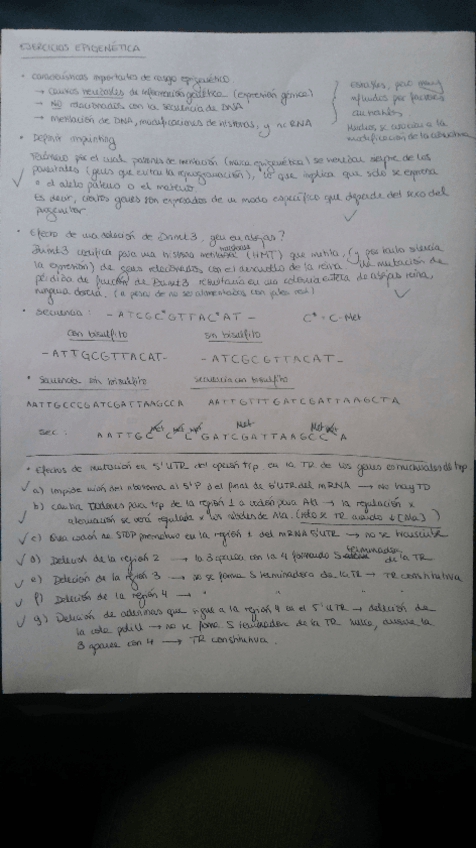 EJERCICIOS EPIGENÉTICA
• Características importantes de rasgo epigenético.
→ Cambios heredables de información genética (expresión génica)
→ NO relacionados con la secuencia de DNA
→ Metilación de DNA, modificaciones de histonas, y ncRNA
Estables, pero muy
influidos por factores
ambientales,
Muchos se asocian a la
modificación de la cromatina
• Definir imprinting
Fenómeno por el cual patrones de metilación (marca epigenética) se heredan siempre de los
parentales (genes que evitan la reprogramación), lo que implica que sólo se expresa
el alelo paterno o el materno.
Es decir, ciertos genes son expresados de un modo específico que depende del sexo del
progenitor
• Efecto de una delección de Dnmt3 gen en abejas?
Dnmt3 codifica para una metilasa (HMT) que metila, (y por tanto silencia
la expresión) de genes relacionados con el desarrollo de la reina. Una mutación de
pérdida de función de Dnmt3 resultaría en una colmena entera de abejas reina,
ninguna obrera. (a pesar de no ser alimentadas con jalea real)
• Secuencia: - ATCGC*GTTAC*AT - C* = C-Met
con bisulfito sin bisulfito
- ATTGCGTTACAT - - ATCGCGTTACAT -
• Secuencia sin bisulfito secuencia con bisulfito
AATTGCCCGATCGATTAAGCCA AATTGTTTGATCGATTAAGCTA
sec: AATTGCCCGATCGATTAAGCCA
• Efectos de mutación en 5'UTR del operón trp en la TR de los genes estructurales de trp
a) Impide unión del ribosoma al 5'P del final de 5'UTR del mRNA → no hay TD
b) cambia codones para trp de la región 1 a codón para Ala → la regulación x
atenuación se verá regulada x los niveles de Ala. (sólo se TR cuando ↓[Ala])
c) Crea codón de STOP prematuro en la región 1 del mRNA 5'UTR → no se transcribe
d) Delección de la región 2 → la 3 aparea con la 4 formando S terminadora de la TR
e) Delección de la región 3 → no se forma S terminadora de la TR → TR constitutiva
f) Delección de la región 4 → " "
g) Delección de adeninas que sigue a la región 4 en el 5'UTR → delección de
la cola poliU → no se forma S terminadora de la TR aunque la
3 aparee con 4 → TR constitutiva.